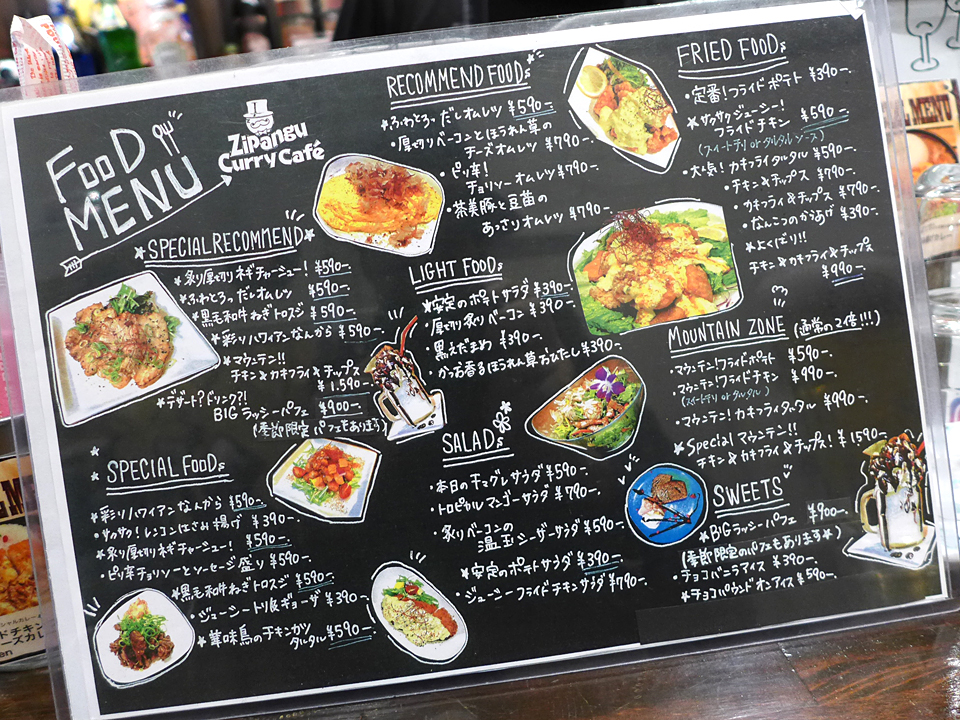 FooD MENU
Zipangu
Curry Café
SPECIAL RECOMMEND
★炙り厚切りネギチャーシュー! ¥590-.
★ふわとろっだしオムレツ ¥590-.
★黒毛和牛ねぎトロスジ ¥590-.
★彩りハワイアンなんから ¥590-.
★マウンテン!!
チキン&カキフライ&チップス
¥1.590-.
★デザート?ドリンク?!
BIGラッシーパフェ ¥900-.
(季節限定パフェもあります)
SPECIAL FooDs
★彩りハワイアンなんから ¥590-.
・サッサク!レンコンはさみ揚げ ¥390-.
★炙り厚切りネギチャーシュー! ¥590-.
・ピリ辛チョリソーとソーセージ盛り ¥590-.
★黒毛和牛ねぎトロスジ ¥590-.
・ジューシートリ&ギョーザ ¥390-.
★華味鳥のチキンカツ
タルタル ¥590-.
RECOMMEND FOODs
★ふわとろっだしオムレツ ¥590-.
・厚切りベーコンとほうれん草の
チーズオムレツ ¥790-.
・ピリ辛!
チョリソーオムレツ ¥790-.
・茶美豚と豆苗の
あっさりオムレツ ¥790-.
LIGHT FooDs
★安定のポテトサラダ ¥390-.
・厚切り炙りベーコン ¥390-.
・黒えだまめ ¥390-.
・かつお香るほうれん草おひたし ¥390-.
SALADs
・本日の干マグレサラダ ¥590-.
・トロピカルマンゴーサラダ ¥790-.
・炙りベーコンの
温玉シーザーサラダ ¥590-.
★安定のポテトサラダ ¥390-.
・ジューシーフライドチキンサラダ ¥790-.
FRIED FOODs
・定番!フライドポテト ¥390-.
★サックサクジューシー!
フライドチキン ¥590-.
(スイートチリ or タルタルソース)
・大人気!カキフライタルタル ¥590-.
・チキン&チップス ¥790-.
・カキフライ&チップス ¥790-.
・なんこつのからあげ ¥390-.
★よくばり!!
チキン&カキフライ&チップス
¥990-.
MOUNTAIN ZONE (通常の2倍!!!)
・マウンテン!フライドポテト ¥590-.
・マウンテン!フライドチキン ¥990-.
(スイートチリ or タルタル)
・マウンテン!カキフライタルタル ¥990-.
★Special マウンテン!!
チキン&カキフライ&チップス! ¥1590-.
SWEETS
★BIGラッシーパフェ ¥900-.
(季節限定のパフェもあります★)
・チョコバニラアイス ¥390-.
★チョコパウンドオンアイス ¥590-.